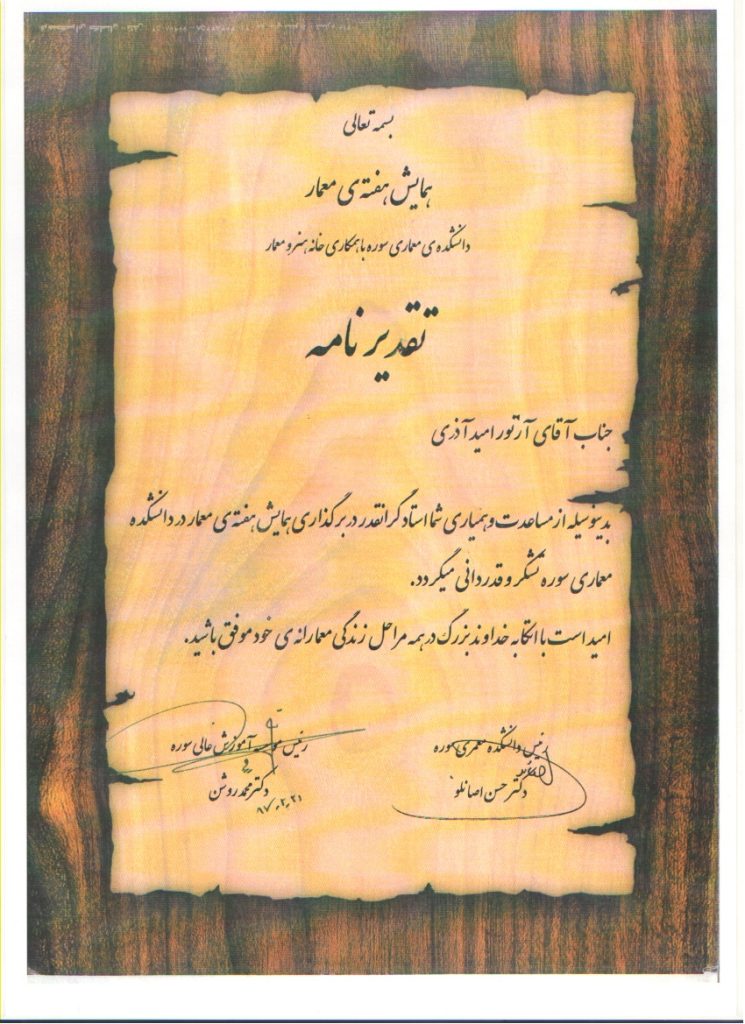 بسمه تعالی
همایش هفته ی معمار
دانشکده ی معماری سوره با همکاری خانه هنر و معمار
تقدیر نامه
جناب آقای آرتور امید آذری
بدینوسیله از مساعدت و همیاری شما استاد گرانقدر در برگذاری همایش هفته ی معمار در دانشکده
معماری سوره تشکر و قدردانی میگردد.
امید است با اتکا به خداوند بزرگ در همه مراحل زندگی معمارانه ی خود موفق باشید.
رئیس دانشکده معماری سوره
دکتر حسن اصانلو
رئیس موسسه آموزش عالی سوره
دکتر محمد روشن
۹۷,۲,۳۱